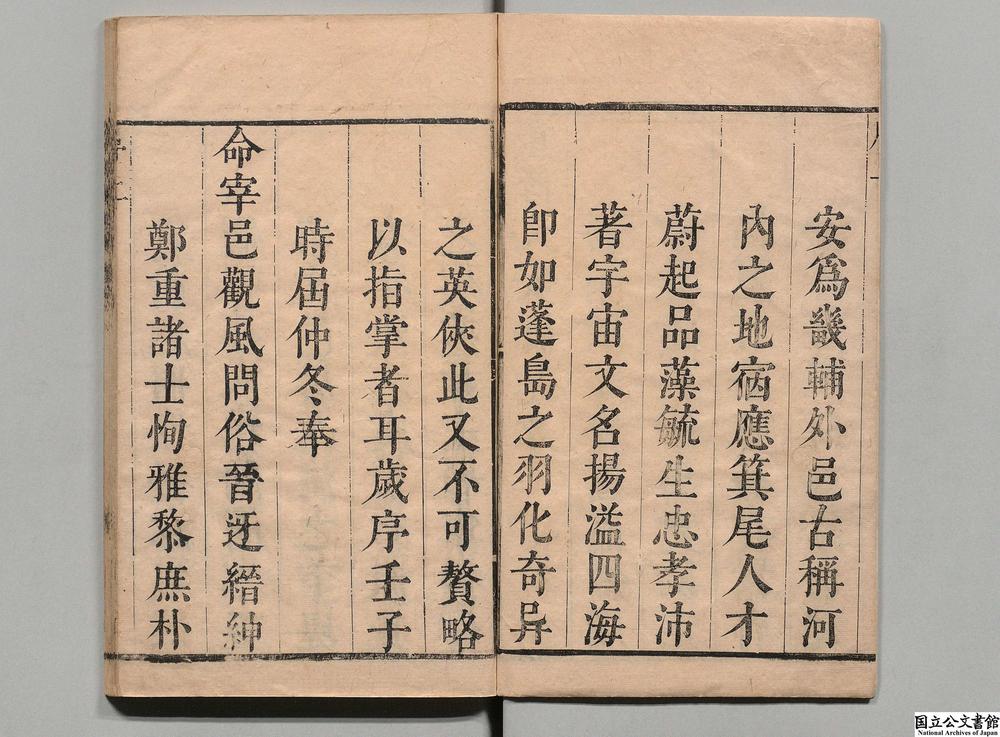 安爲畿輔外邑古稱河
內之地宿應箕尾人才
蔚起品藻毓生忠孝沛
著宇宙文名揚溢四海
卽如蓬島之羽化奇异
之英俠此又不可贅略
以指掌者耳歲序壬子
時屆仲冬奉
命宰邑觀風問俗晉迓縉紳
鄭重諸士恂雅黎庶朴
国立公文書館
National Archives of Japan